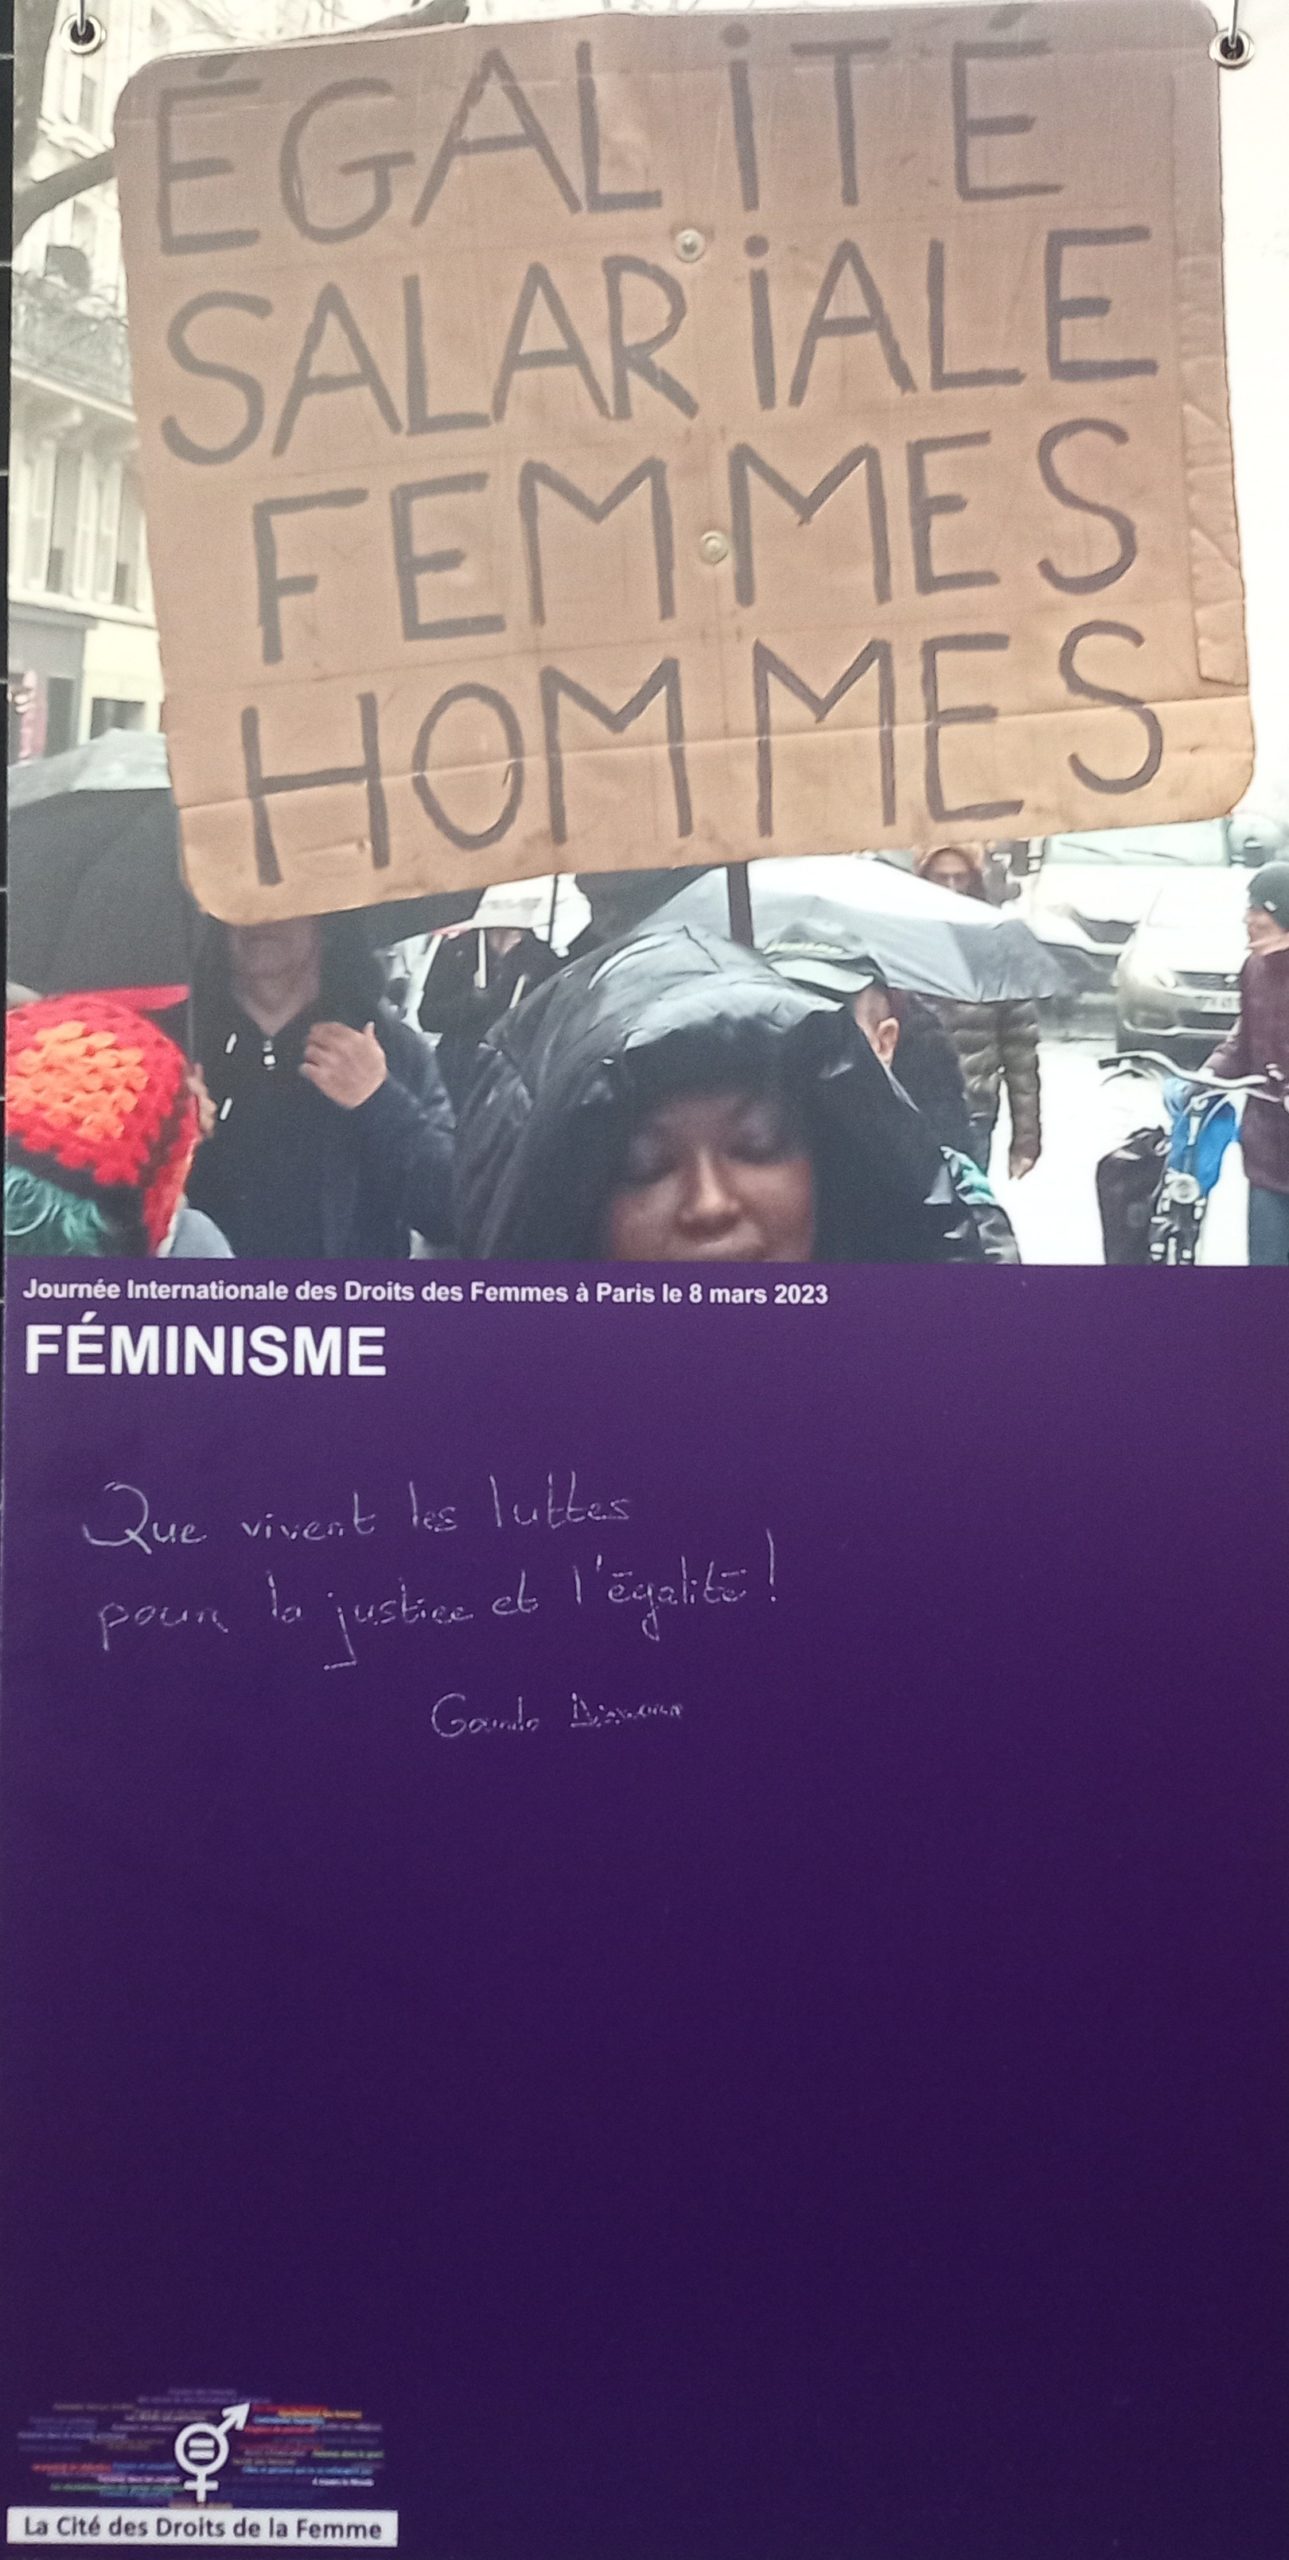 ÉGALiTÉ
SALARiALE
FEMMES
HOMMES
Journée Internationale des Droits des Femmes à Paris le 8 mars 2023
FÉMINISME
Que vivent les luttes
pour la justice et l'égalité !
La Cité des Droits de la Femme